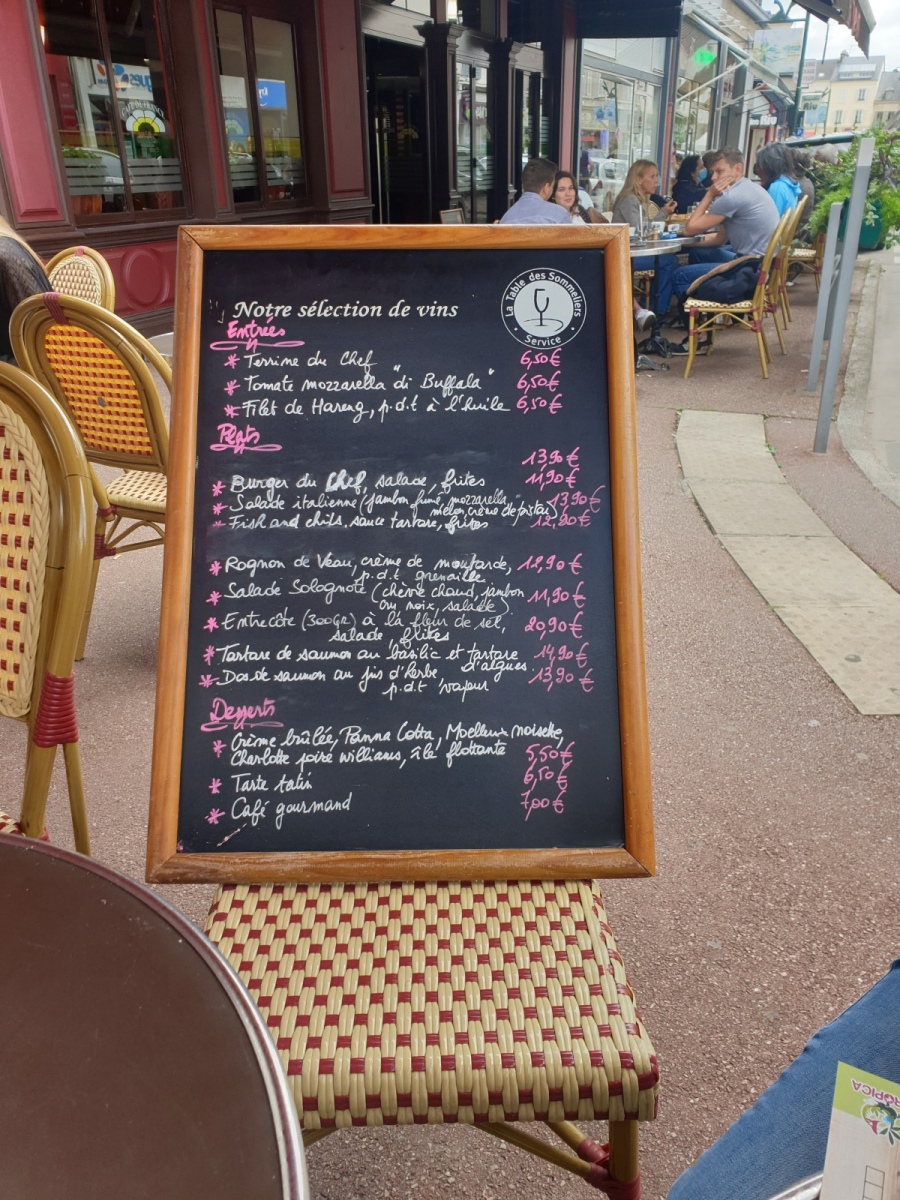 Notre sélection de vins
La Table des Sommeliers
Service
Entrées
* Terrine du Chef 6,50€
* Tomate mozzarella "di Buffala" 6,50€
* Filet de Hareng, p.d.t à l'huile 6,50€
Plats
13,90€
* Burger du Chef, salade, frites 11,90€
* Salade italienne (jambon fumé, mozzarella, 13,90€
melon, crème de pistou)
* Fish and chips, sauce tartare, frites 12,90€
* Rognon de Veau, crème de moutarde, 12,90€
p.d.t grenaille
* Salade Solognote (chèvre chaud, jambon 11,90€
cru, noix, salade)
* Entrecôte (300Gr) à la fleur de sel, 20,90€
salade, frites
* Tartare de saumon au basilic et tartare 14,90€
d'algues
* Dos de saumon au jus d'herbe 13,90€
p.d.t vapeur
Desserts
* Crème brûlée, Panna Cotta, Moelleux noisette,
Charlotte poire williams, île flottante 5,50€
* Tarte tatin 6,50€
* Café gourmand 7,00€